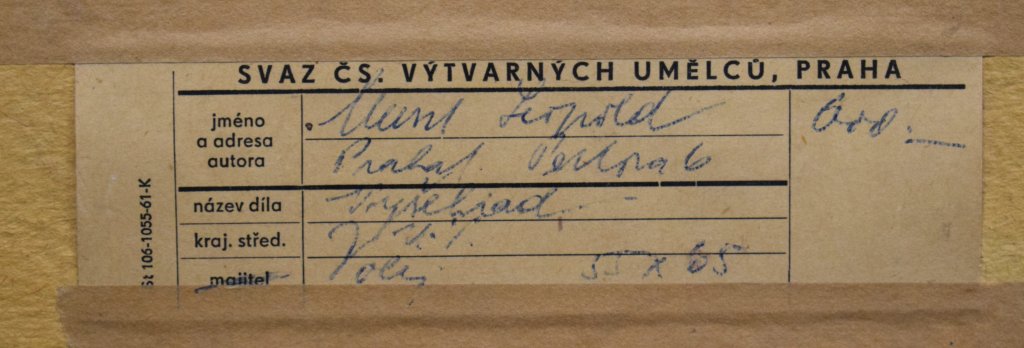 SVAZ ČS. VÝTVARNÝCH UMĚLCŮ, PRAHA
jméno a adresa autora
Leopold
Praha 1.
název díla Vyšehrad
kraj. střed.
majitel Olej 55 x 65
St 106-1055-61-K